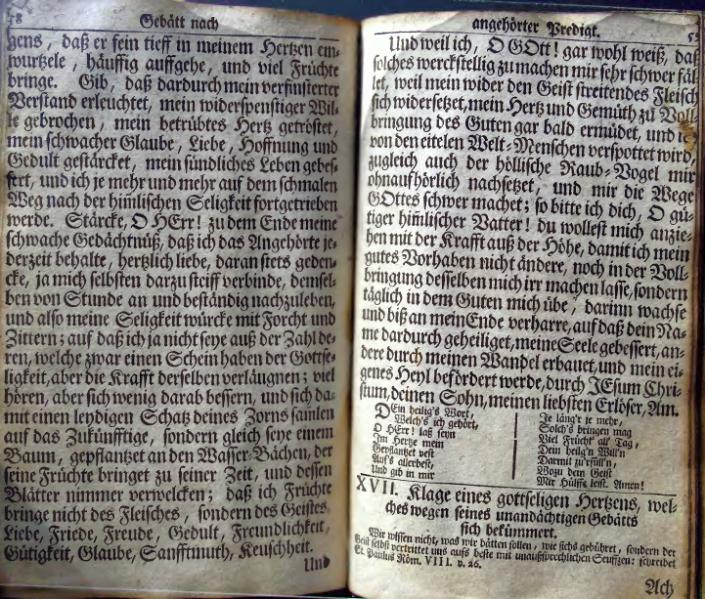 58 Gebätt nach
gens, daß er fein tieff in meinem Hertzen ein-
wurtzele, häuffig auffgehe, und viel Früchte
bringe. Gib, daß dardurch mein verfinsterter
Verstand erleuchtet, mein widerspenstiger Wil-
le gebrochen, mein betrübtes Hertz getröstet,
mein schwacher Glaube, Liebe, Hoffnung und
Gedult gestärcket, mein sündliches Leben gebes-
sert, und ich je mehr und mehr auf dem schmalen
Weg nach der him̄lischen Seligkeit fortgetrieben
werde. Stärcke, O HErr! zu dem Ende meine
schwache Gedächtnüß, daß ich das Angehörte je-
derzeit behalte, hertzlich liebe, daran stets geden-
cke, ja mich selbsten darzu steiff verbinde, demsel-
ben von Stunde an und beständig nachzuleben,
und also meine Seligkeit würcke mit Forcht und
Zittern; auf daß ich ja nicht seye auß der Zahl de-
ren, welche zwar einen Schein haben der Gottse-
ligkeit, aber die Krafft derselben verläugnen; viel
hören, aber sich wenig darab bessern, und sich da-
mit einen leydigen Schatz deines Zorns sam̄len
auf das Zukünfftige, sondern gleich seye einem
Baum, gepflantzet an den Wasser-Bächen, der
seine Früchte bringet zu seiner Zeit, und dessen
Blätter nimmer verwelcken; daß ich Früchte
bringe nicht des Fleisches, sondern des Geistes,
Liebe, Friede, Freude, Gedult, Freundlichkeit,
Gütigkeit, Glaube, Sanfftmuth, Keuschheit.
Und
angehörter Predigt. 5
Und weil ich, O GOtt! gar wohl weiß, daß
solches werckstellig zu machen mir sehr schwer fäl-
let, weil mein wider den Geist streitendes Fleisch
sich widersetzet, mein Hertz und Gemüth zu Voll-
bringung des Guten gar bald ermüdet, und ich
von den eitelen Welt-Menschen verspottet wird,
zugleich auch der höllische Raub-Vogel mir
ohnaufhörlich nachsetzet, und mir die Wege
GOttes schwer machet; so bitte ich dich, O gü-
tiger him̄lischer Vatter! du wollest mich anzie-
hen mit der Krafft auß der Höhe, damit ich mein
gutes Vorhaben nicht ändere, noch in der Voll-
bringung desselben mich irr machen lasse, sondern
täglich in dem Guten mich übe, darinn wachse
und biß an mein Ende verharre, auf daß dein Na-
me dardurch geheiliget, meine Seele gebessert, an-
dere durch meinen Wandel erbauet, und mein ei-
genes Heyl befördert werde, durch JEsum Chri-
stum, deinen Sohn, meinen liebsten Erlöser, Am.
DEin heilig's Wort,
Welch's ich gehört,
O HErr! laß seyn
Im Hertze mein
Gepflantzet vest
Auf's allerbest,
Und gib in mir
Je läng'r je mehr,
Solch's bringen mag
Viel Frücht' all' Tag,
Dein heilg'n Will'n
Darmit zu'rfüll'n,
Wozu dein Geist
Mir Hülffe leist. Amen!
XVII. Klage eines gottseligen Hertzens, wel-
ches wegen seines unandächtigen Gebätts
sich bekümmert.
Wir wissen nicht, was wir bätten sollen, wie sichs gebühret, sondern der
Geist selbst vertrittet uns aufs beste mit unaußsprechlichen Seuffzen: schreibet
St. Paulus Röm. VIII. v. 26.
Ach